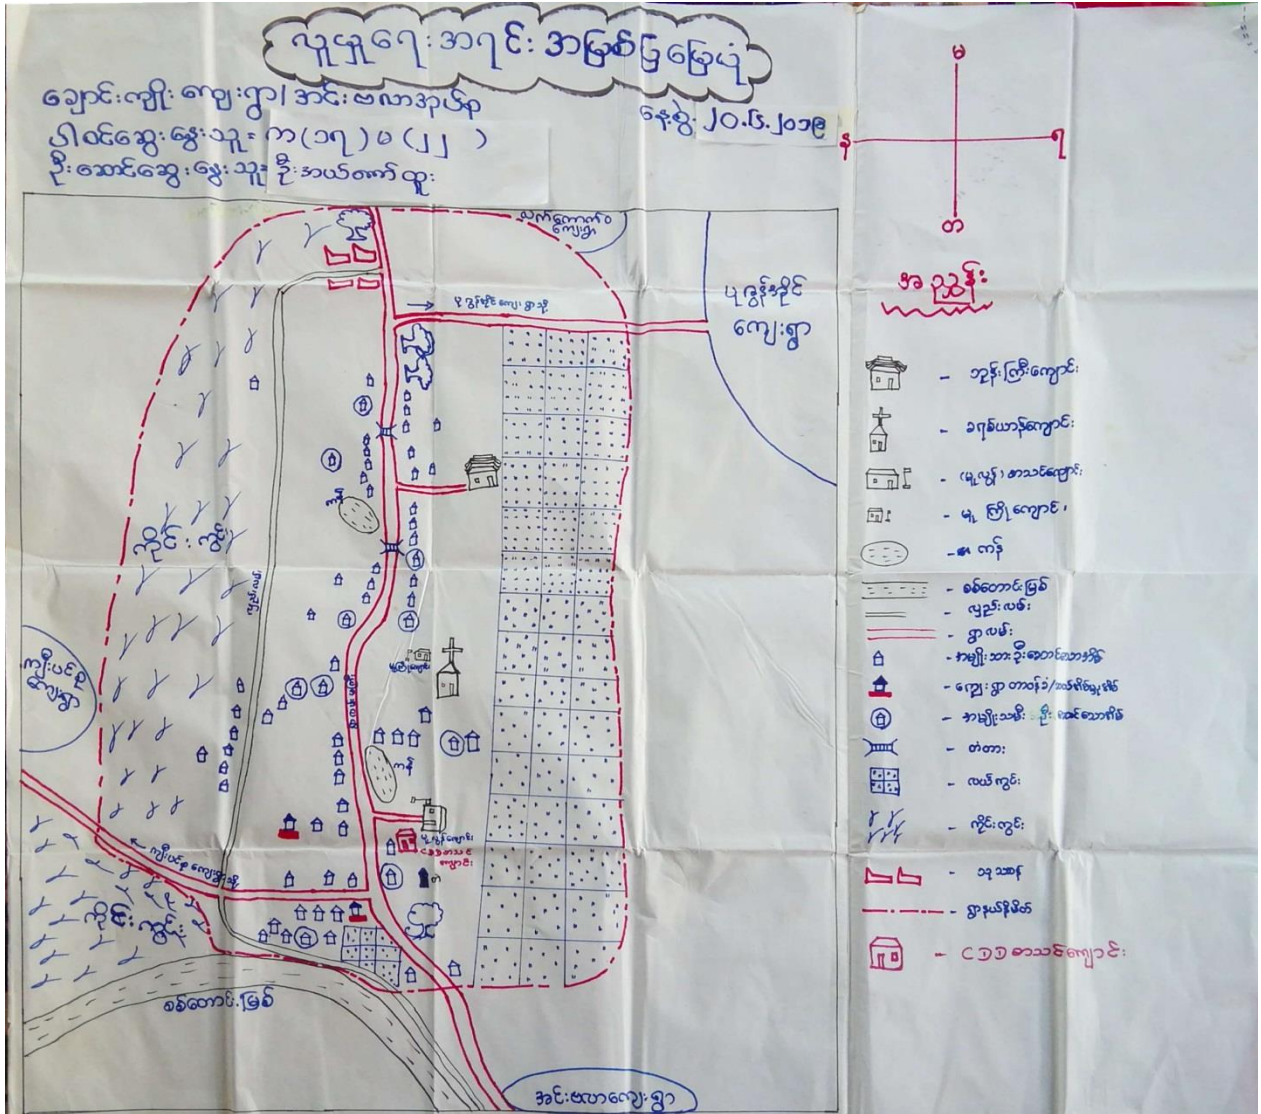 လူမှုရေးအရင်းအမြစ်ပြမြေပုံ
ချောင်းကျိုး ကျေးရွာ၊ အင်းဗလာအုပ်စု
ပါဝင်ဆွေးနွေးသူ= က(၁၅) မ(၂၂ )
ဦးဆောင်ဆွေးနွေးသူ= ဦးအယ်တော်ထူး
နေ့စွဲ. ၂၀.၆.၂၀၁၉
မ
န
ရ
တ
ကျေးရွာ
ပုဇွန်အိုင်ကျေးရွာသို့
ပုဇွန်အိုင်
ကျေးရွာ
ကန်
ကိုင်းကွင်း
လှည်းလမ်း
ကျီးပင်စု
ကျေးရွာ
မူကြိုကျောင်း
ကန်
မူလွန်ကျောင်း
CDD စာသင်
ကျောင်း
ကိုင်းကွင်း
စစ်တောင်းမြစ်
အင်းဗလာကျေးရွာ
အညွှန်း
- ဘုန်းကြီးကျောင်း
- ခရစ်ယာန်ကျောင်း
- (မူလွန်) စာသင်ကျောင်း
- မူကြိုကျောင်း
- ကန်
- စစ်တောင်းမြစ်
- လှည်းလမ်း
- ရွာလမ်း
- အမျိုးသားဦးဆောင်သောအိမ်
- အမျိုးသမီးဦးဆောင်သောအိမ်
- တံတား
- လယ်ကွင်း
- ကိုင်းကွင်း
- သုသာန်
- ရွာနယ်နိမိတ်
- CDD စာသင်ကျောင်း